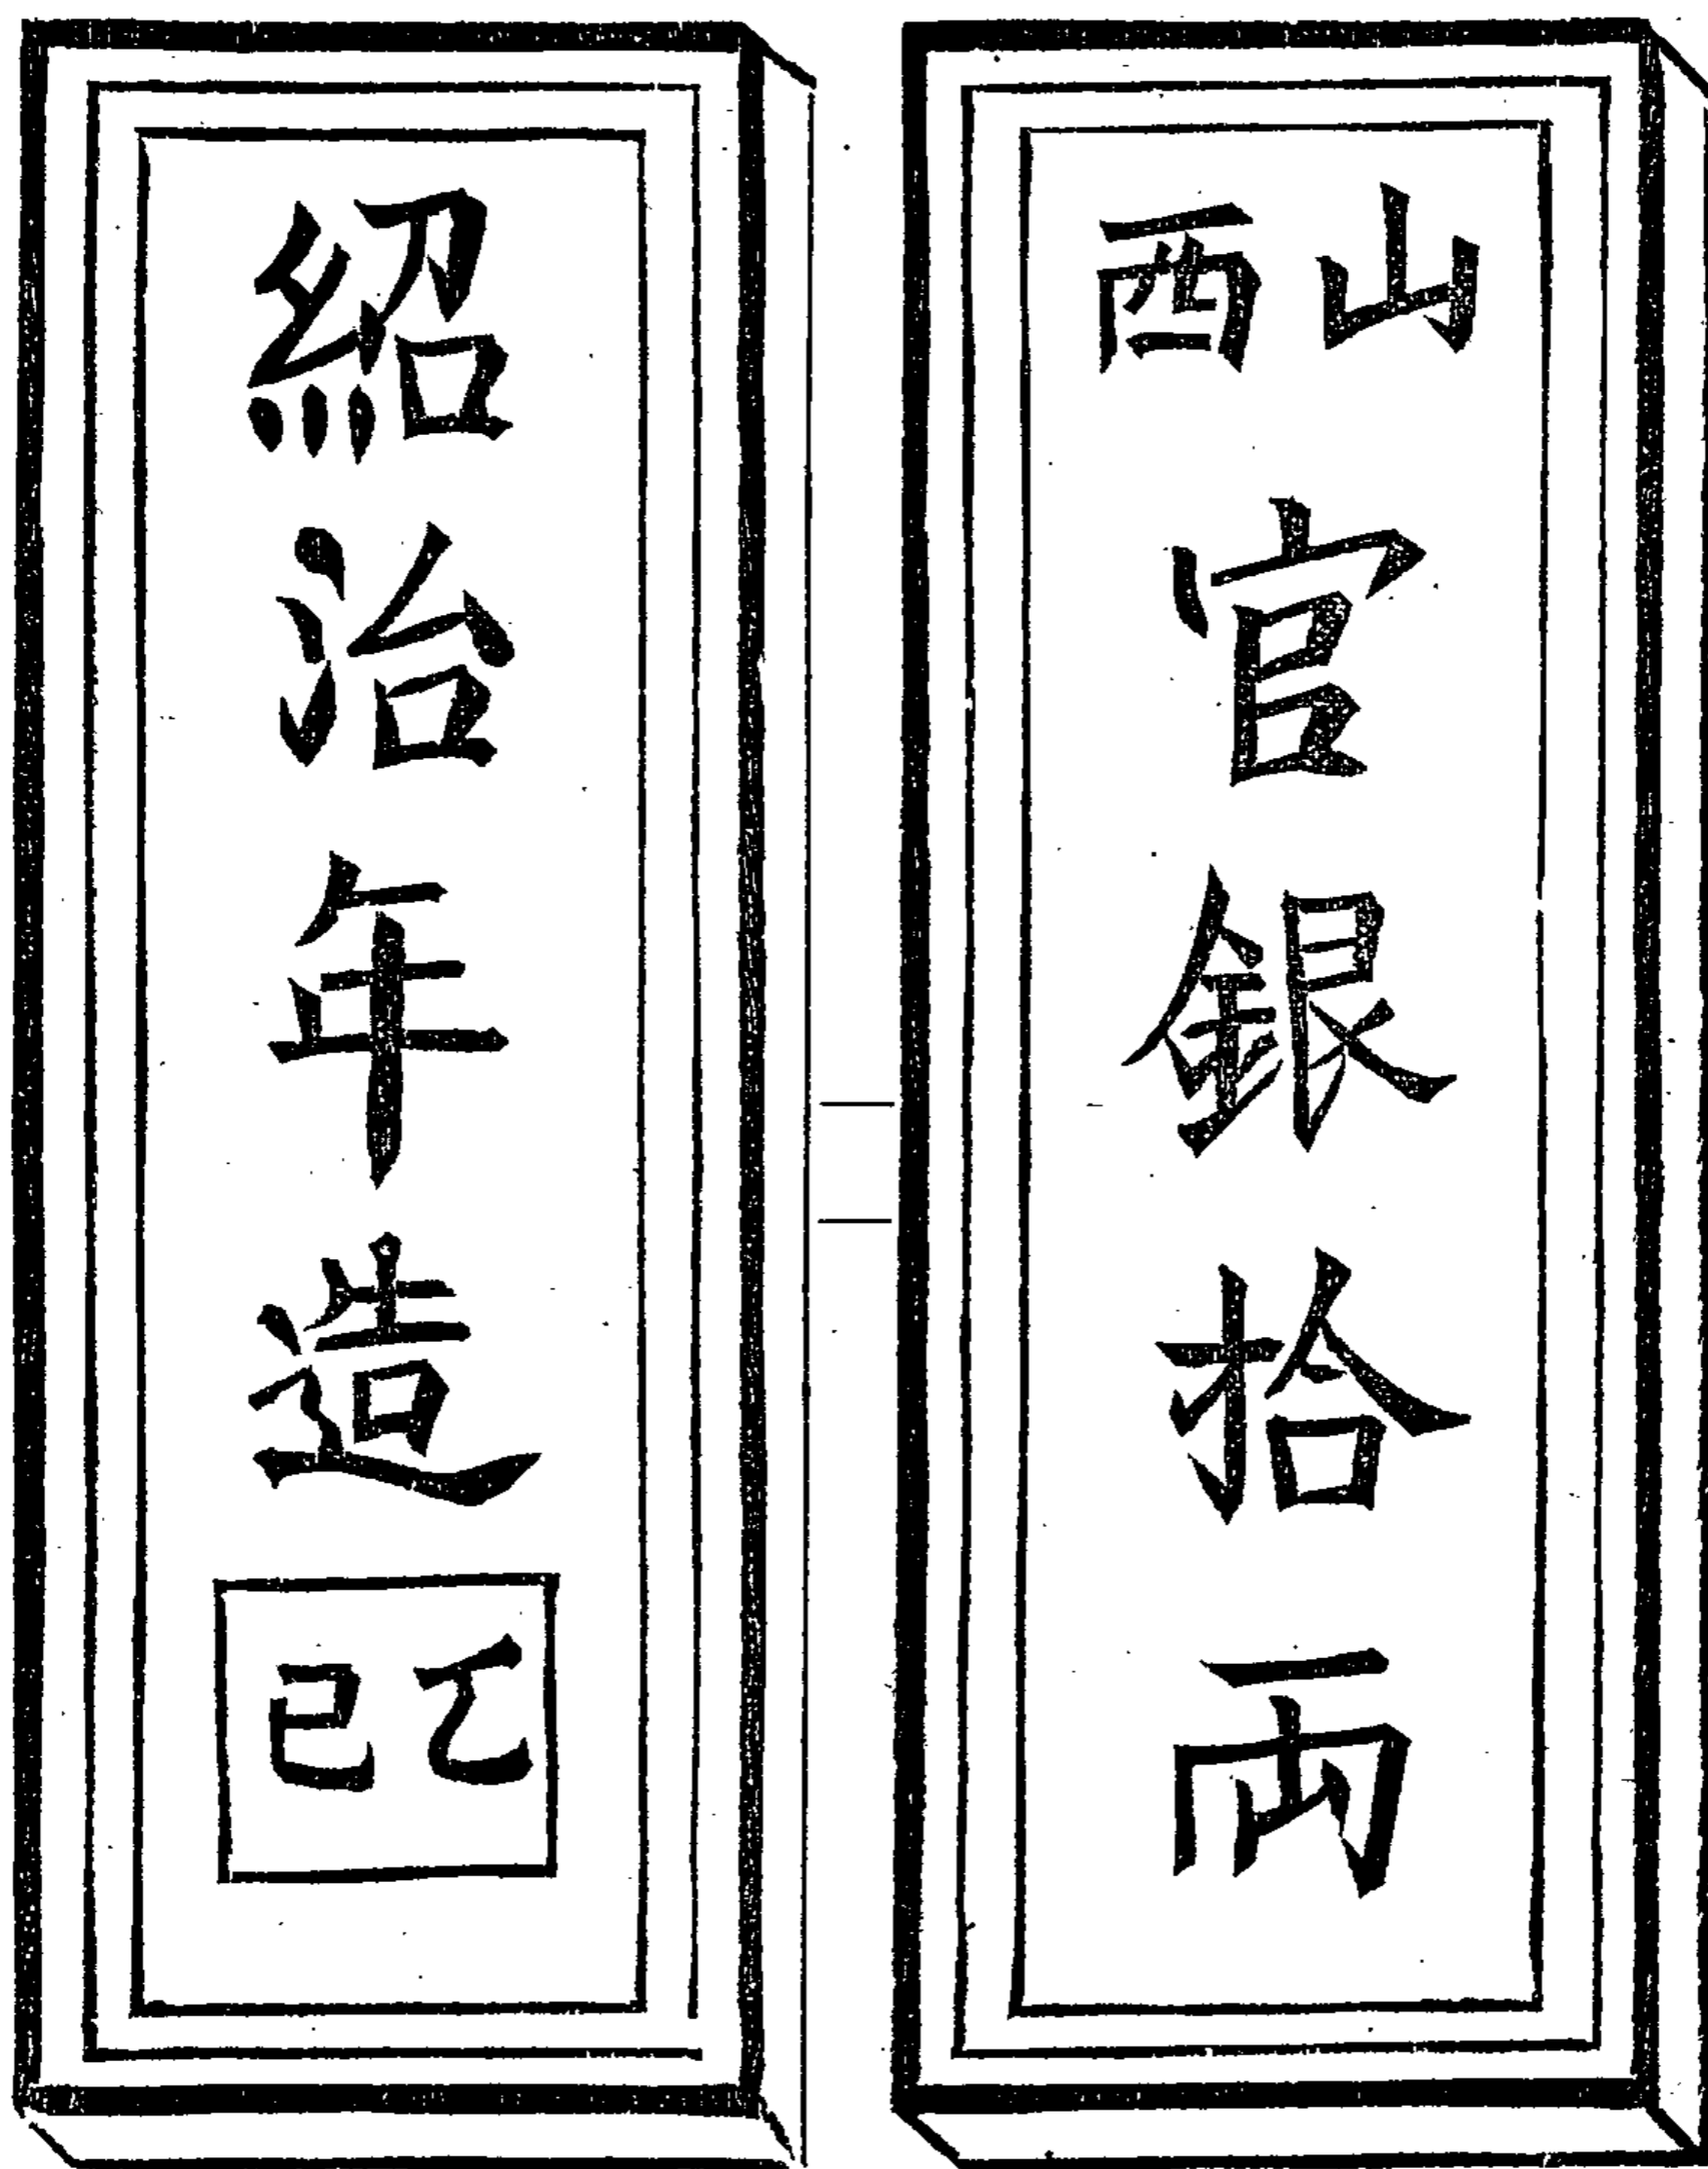 山西官銀拾両
紹治年造
乙巳